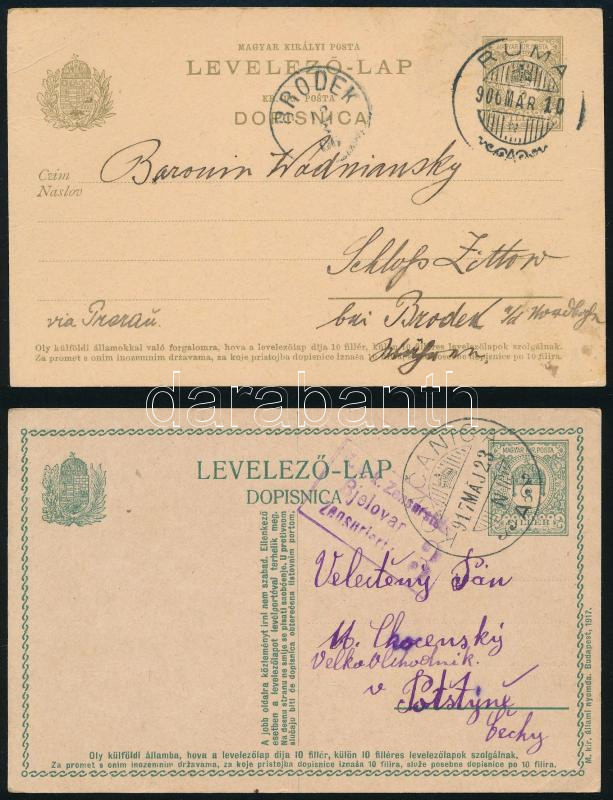 MAGYAR KIRÁLYI POSTA
LEVELEZŐ-LAP
KR. POSTA
DOPISNICA
BRODEK
RUMA
906 MÁR 10
MAGYAR KIR. POSTA
Czim
Naslov
Baronin Wodniansky
Schloß Zittow
bei Brodek a/d Nordbahn
via Prerau
Mähren
Oly külföldi államokkal való forgalomra, hova a levelezőlap díja 10 fillér, külön 10 filléres levelezőlapok szolgálnak.
Za promet s onim inozemnim državama, za koje pristojba dopisnice iznaša 10 filira, služe posebne dopisnice po 10 filira.
darabanth
LEVELEZŐ-LAP
DOPISNICA
Bjelovar
Zensuriert
917 MÁJ 23
MAGYAR KIR. POSTA
A jobb oldalra közleményt írni nem szabad. Ellenkező
esetben a levelezőlapot levélportóval terhelik meg.
Na desnu stranu ne smije se pisati saobćenje. U protivnom
slučaju biti će dopisnica obterećena listovnim portom.
Velectěný Pán
Chocenský
Velkoobchodník
v
Čechy
M. kir. állami nyomda. Budapest, 1917.
Oly külföldi államba, hova a levelezőlap díja 10 fillér, külön 10 filléres levelezőlapok szolgálnak.
Za promet s onim inozemnim državama, za koje pristojba dopisnice iznaša 10 filira, služe posebne dopisnice po 10 filira.